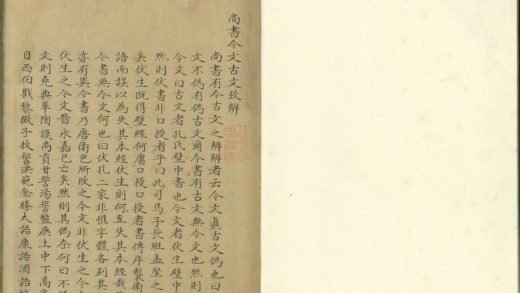 尚書今文古文攷辨
尚書有今古文之辨辨者云今文真古文偽也曰
文不偽有偽古文爾今書有古文無今文也然則
今文曰古文者孔氏壁中書也今文者伏生壁中
然則伏書非口授者乎曰此司馬子長班孟堅之
矣伏生既得壁經何庸口授口授者書傳序盤衛
語而誤以為失其本經伏生則何至失其本經哉
今書無今文何也曰伏孔二家非惟字體各別其
亦有異今書乃唐衛包所改之今文非伏生之今
伏生之今文晉永嘉已亡矣然則其偽奈何曰不
文則堯典皋陶謨禹貢甘誓湯誓盤庚上中下高
日西伯戡黎微子牧誓洪範金縢大誥康誥酒誥